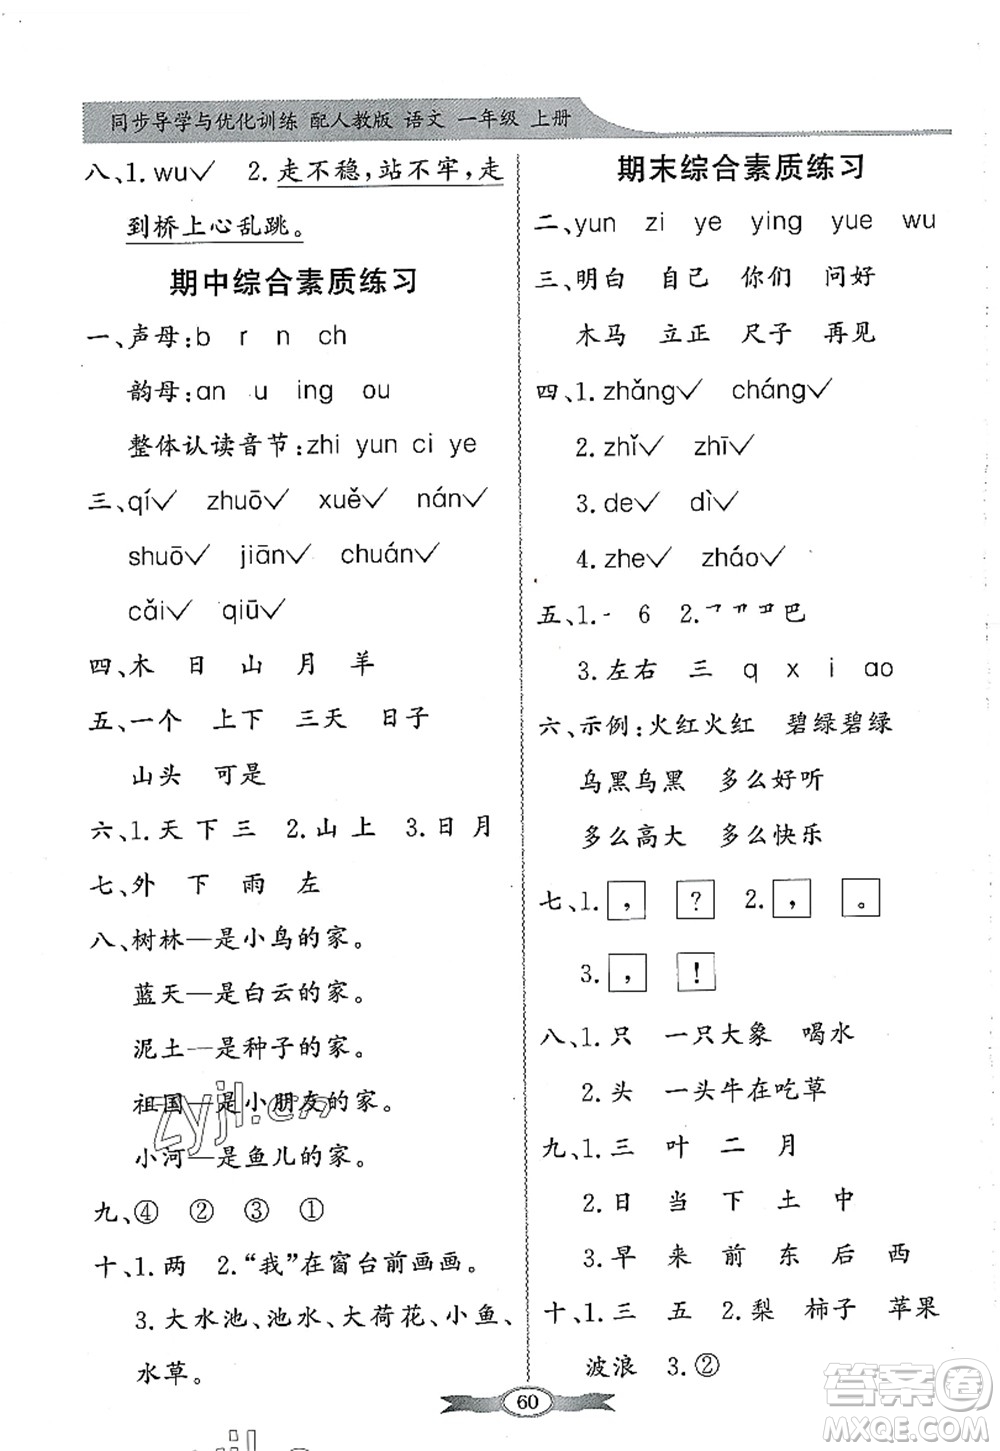 同步导学与优化训练 配人教版 语文 一年级 上册
八、1. wu✓ 2. 走不稳,站不牢,走
到桥上心乱跳。
期中综合素质练习
一、声母:b r n ch
韵母:an u ing ou
整体认读音节:zhi yun ci ye
三、qí✓ zhuō✓ xuě✓ nán✓
shuō✓ jiān✓ chuán✓
cǎi✓ qiū✓
四、木 日 山 月 羊
五、一个 上下 三天 日子
山头 可是
六、1. 天 下 三 2. 山 上 3. 日 月
七、外 下 雨 左
八、树林—是小鸟的家。
蓝天—是白云的家。
泥土—是种子的家。
祖国—是小朋友的家。
小河—是鱼儿的家。
九、④ ② ③ ①
十、1. 两 2. “我”在窗台前画画。
3. 大水池、池水、大荷花、小鱼、
水草。
期末综合素质练习
二、yun zi ye ying yue wu
三、明白 自己 你们 问好
木马 立正 尺子 再见
四、1. zhǎng✓ cháng✓
2. zhǐ✓ zhī✓
3. de✓ dì✓
4. zhe✓ zháo✓
五、1. ㇀ 6 2. 巴
3. 左右 三 q x i ao
六、示例:火红火红 碧绿碧绿
乌黑乌黑 多么好听
多么高大 多么快乐
七、1. , ? 2. , 。
3. , !
八、1. 只 一只大象 喝水
2. 头 一头牛在吃草
九、1. 三 叶 二 月
2. 日 当 下 土 中
3. 早 来 前 东 后 西
十、1. 三 五 2. 梨 柿子 苹果
波浪 3. ②
60
zyjl.cn
答案圈
MXQE.COM